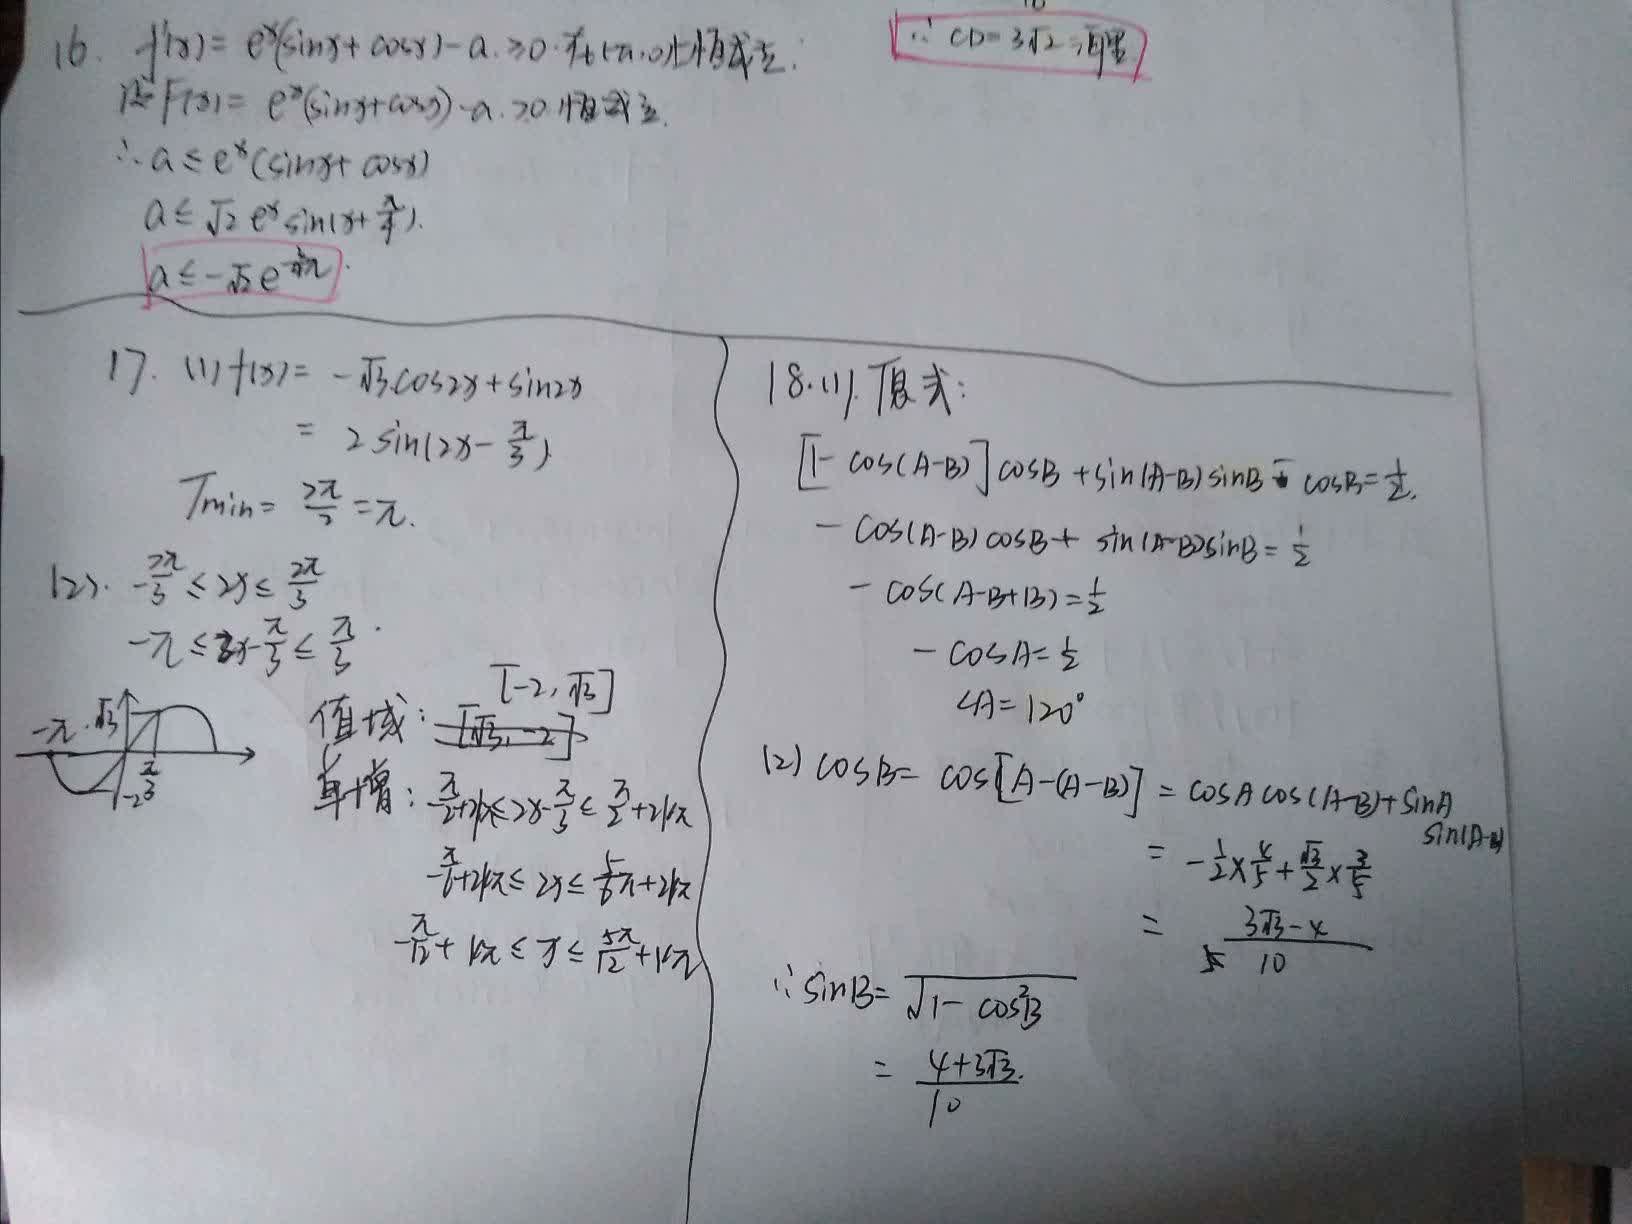 16. f'(x) = e^x(sinx + cosx) - a ≥ 0 在(-π,0)上恒成立.
F(x) = e^x(sinx+cosx) - a ≥ 0 恒成立.
∴ a ≤ e^x(sinx + cosx)
a ≤ √2 e^x sin(x + π/4).
a ≤ -√2 e^
∴ CD = 3√2
17. (1) f(x) = -√3 cos2x + sin2x
= 2 sin(2x - π/3)
Tmin = 2π/2 = π.
(2). -2π/3 ≤ 2x ≤ 2π/3
-π ≤ 2x - π/3 ≤ π/3
-π √3 π/3 -2
[-2, √3]
值域: [√3, -2]
单增: -π/2+2kπ ≤ 2x - π/3 ≤ π/2 + 2kπ
-π/6+2kπ ≤ 2x ≤ 5/6π+2kπ
-π/12 + kπ ≤ x ≤ 5π/12 + kπ
18.(1). 原式:
[1 - cos(A-B)] cosB + sin(A-B) sinB - cosB = 1/2.
- cos(A-B) cosB + sin(A-B) sinB = 1/2
- cos(A-B+B) = 1/2
- cosA = 1/2
∠A = 120°
(2) cosB = cos[A-(A-B)] = cosA cos(A-B) + sinA
sin(A-B)
= -1/2 × 4/5 + √3/2 × 3/5
= 3√3-4/10
∴ sinB = √1 - cos²B
= 4+3√3/10